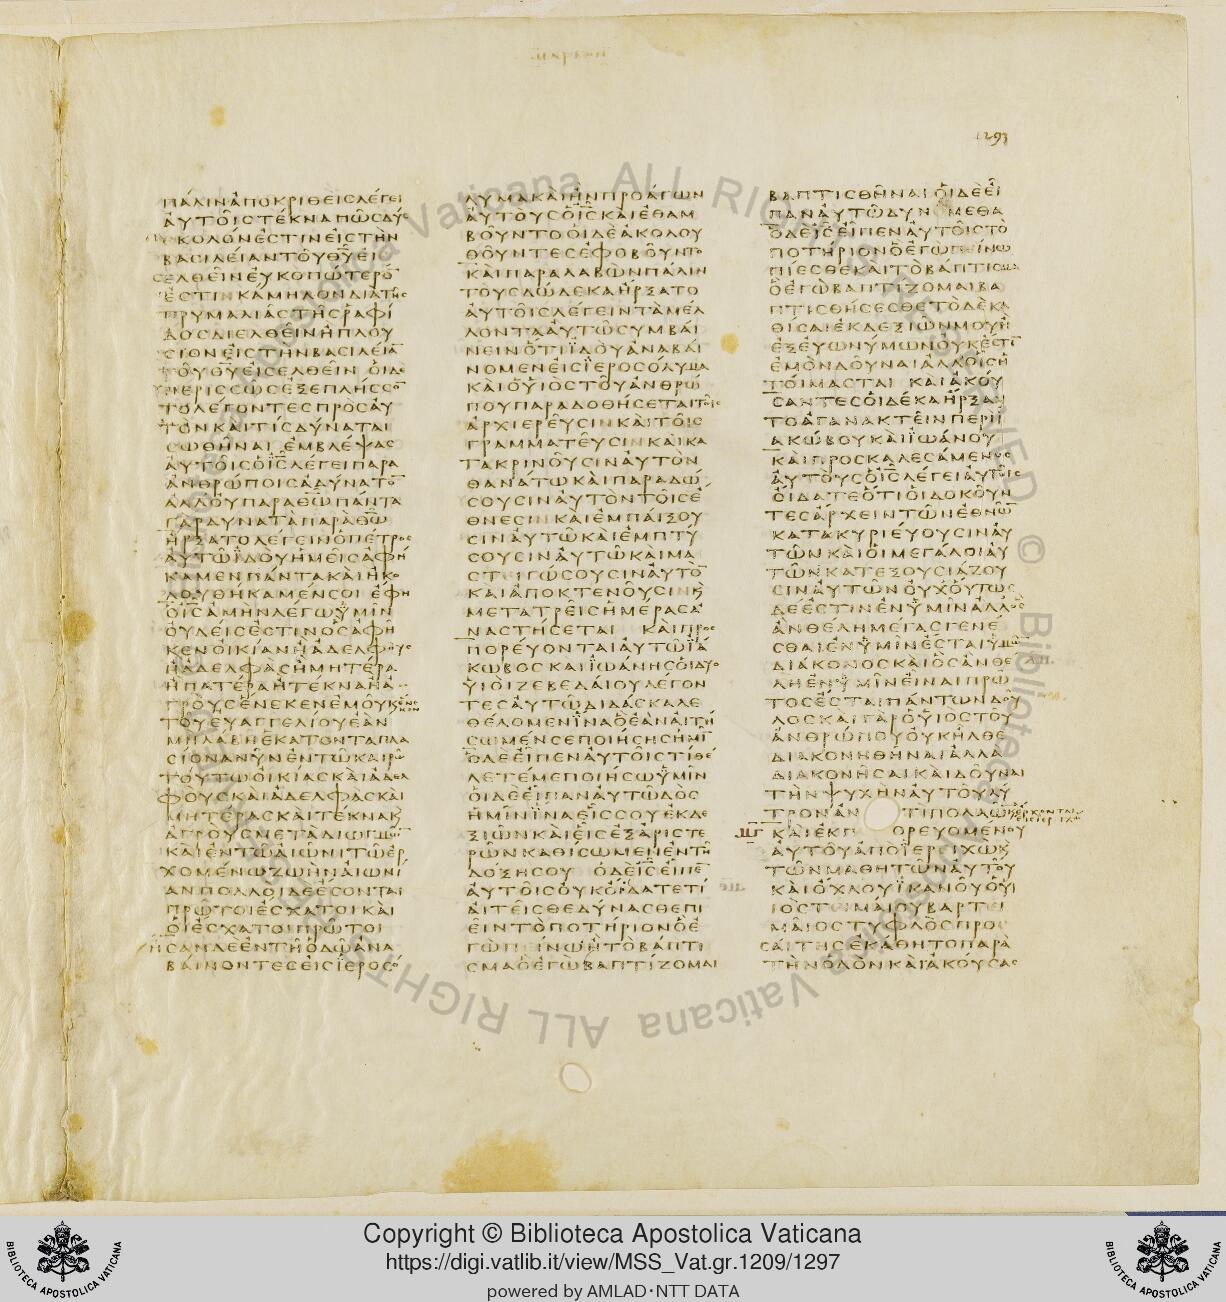 1293
ΠΑΛΙΝ ΑΠΟΚΡΙΘΕΙΣ ΛΕΓΕΙ
ΑΥΤΟΙΣ ΤΕΚΝΑ ΠΩΣ ΔΥΣ
ΚΟΛΟΝ ΕΣΤΙΝ ΕΙΣ ΤΗΝ
ΒΑΣΙΛΕΙΑΝ ΤΟΥ ΘΥ ΕΙ
ΣΕΛΘΕΙΝ ΕΥΚΟΠΩΤΕΡΟ
ΕΣΤΙΝ ΚΑΜΗΛΟΝ ΔΙΑ ΤΗΣ
ΤΡΥΜΑΛΙΑΣ ΤΗΣ ΡΑΦΙ
ΔΟΣ ΔΙΕΛΘΕΙΝ Η ΠΛΟΥ
ΣΙΟΝ ΕΙΣ ΤΗΝ ΒΑΣΙΛΕΙΑ
ΤΟΥ ΘΥ ΕΙΣΕΛΘΕΙΝ ΟΙ ΔΕ
ΠΕΡΙΣΣΩΣ ΕΞΕΠΛΗΣΣΟ
ΤΟ ΛΕΓΟΝΤΕΣ ΠΡΟΣ ΑΥ
ΤΟΝ ΚΑΙ ΤΙΣ ΔΥΝΑΤΑΙ
ΣΩΘΗΝΑΙ ΕΜΒΛΕΨΑΣ
ΑΥΤΟΙΣ Ο ΙΣ ΛΕΓΕΙ ΠΑΡΑ
ΑΝΘΡΩΠΟΙΣ ΑΔΥΝΑΤΟ
ΑΛΛ ΟΥ ΠΑΡΑ ΘΩ ΠΑΝΤΑ
ΓΑΡ ΔΥΝΑΤΑ ΠΑΡΑ ΘΩ
ΗΡΞΑΤΟ ΛΕΓΕΙΝ Ο ΠΕΤΡΟΣ
ΑΥΤΩ ΙΔΟΥ ΗΜΕΙΣ ΑΦΗ
ΚΑΜΕΝ ΠΑΝΤΑ ΚΑΙ ΗΚΟ
ΛΟΥΘΗΚΑΜΕΝ ΣΟΙ ΕΦΗ
Ο ΙΣ ΑΜΗΝ ΛΕΓΩ ΥΜΙΝ
ΟΥΔΕΙΣ ΕΣΤΙΝ ΟΣ ΑΦΗ
ΚΕΝ ΟΙΚΙΑΝ Η ΑΔΕΛΦΟΥΣ
Η ΑΔΕΛΦΑΣ Η ΜΗΤΕΡΑ
Η ΠΑΤΕΡΑ Η ΤΕΚΝΑ Η Α
ΓΡΟΥΣ ΕΝΕΚΕΝ ΕΜΟΥ Κ ΕΝΕΚΕΝ
ΤΟΥ ΕΥΑΓΓΕΛΙΟΥ ΕΑΝ
ΜΗ ΛΑΒΗ ΕΚΑΤΟΝΤΑΠΛΑ
ΣΙΟΝΑ ΝΥΝ ΕΝ ΤΩ ΚΑΙΡΩ
ΤΟΥΤΩ ΟΙΚΙΑΣ ΚΑΙ ΑΔΕΛ
ΦΟΥΣ ΚΑΙ ΑΔΕΛΦΑΣ ΚΑΙ
ΜΗΤΕΡΑΣ ΚΑΙ ΤΕΚΝΑ Κ
ΑΓΡΟΥΣ ΜΕΤΑ ΔΙΩΓΜΩ
ΚΑΙ ΕΝ ΤΩ ΑΙΩΝΙ ΤΩ ΕΡ
ΧΟΜΕΝΩ ΖΩΗΝ ΑΙΩΝΙ
ΑΝ ΠΟΛΛΟΙ ΔΕ ΕΣΟΝΤΑΙ
ΠΡΩΤΟΙ ΕΣΧΑΤΟΙ ΚΑΙ
ΟΙ ΕΣΧΑΤΟΙ ΠΡΩΤΟΙ
ΗΣΑΝ ΔΕ ΕΝ ΤΗ ΟΔΩ ΑΝΑ
ΒΑΙΝΟΝΤΕΣ ΕΙΣ ΙΕΡΟΣΟ
ΛΥΜΑ ΚΑΙ ΗΝ ΠΡΟΑΓΩΝ
ΑΥΤΟΥΣ Ο ΙΣ ΚΑΙ ΕΘΑΜ
ΒΟΥΝΤΟ ΟΙ ΔΕ ΑΚΟΛΟΥ
ΘΟΥΝΤΕΣ ΕΦΟΒΟΥΝΤΟ
ΚΑΙ ΠΑΡΑΛΑΒΩΝ ΠΑΛΙΝ
ΤΟΥΣ ΔΩΔΕΚΑ ΗΡΞΑΤΟ
ΑΥΤΟΙΣ ΛΕΓΕΙΝ ΤΑ ΜΕΛ
ΛΟΝΤΑ ΑΥΤΩ ΣΥΜΒΑΙ
ΝΕΙΝ ΟΤΙ ΙΔΟΥ ΑΝΑΒΑΙ
ΝΟΜΕΝ ΕΙΣ ΙΕΡΟΣΟΛΥΜΑ
ΚΑΙ Ο ΥΙΟΣ ΤΟΥ ΑΝΘΡΩ
ΠΟΥ ΠΑΡΑΔΟΘΗΣΕΤΑΙ ΤΟΙΣ
ΑΡΧΙΕΡΕΥΣΙΝ ΚΑΙ ΤΟΙΣ
ΓΡΑΜΜΑΤΕΥΣΙΝ ΚΑΙ ΚΑ
ΤΑΚΡΙΝΟΥΣΙΝ ΑΥΤΟΝ
ΘΑΝΑΤΩ ΚΑΙ ΠΑΡΑΔΩ
ΣΟΥΣΙΝ ΑΥΤΟΝ ΤΟΙΣ Ε
ΘΝΕΣΙΝ ΚΑΙ ΕΜΠΑΙΞΟΥ
ΣΙΝ ΑΥΤΩ ΚΑΙ ΕΜΠΤΥ
ΣΟΥΣΙΝ ΑΥΤΩ ΚΑΙ ΜΑ
ΣΤΙΓΩΣΟΥΣΙΝ ΑΥΤΟ
ΚΑΙ ΑΠΟΚΤΕΝΟΥΣΙΝ Κ
ΜΕΤΑ ΤΡΕΙΣ ΗΜΕΡΑΣ Α
ΝΑΣΤΗΣΕΤΑΙ ΚΑΙ ΠΡΟΣ
ΠΟΡΕΥΟΝΤΑΙ ΑΥΤΩ ΙΑ
ΚΩΒΟΣ ΚΑΙ ΙΩΑΝΗΣ ΟΙ ΔΥΟ
ΥΙΟΙ ΖΕΒΕΔΑΙΟΥ ΛΕΓΟΝ
ΤΕΣ ΑΥΤΩ ΔΙΔΑΣΚΑΛΕ
ΘΕΛΟΜΕΝ ΙΝΑ Ο ΕΑΝ ΑΙΤΗ
ΣΩΜΕΝ ΣΕ ΠΟΙΗΣΗΣ ΗΜΙ
Ο ΔΕ ΕΙΠΕΝ ΑΥΤΟΙΣ ΤΙ ΘΕ
ΛΕΤΕ ΜΕ ΠΟΙΗΣΩ ΥΜΙΝ
ΟΙ ΔΕ ΕΙΠΑΝ ΑΥΤΩ ΔΟΣ
ΗΜΙΝ ΙΝΑ ΕΙΣ ΣΟΥ ΕΚ ΔΕ
ΞΙΩΝ ΚΑΙ ΕΙΣ ΕΞ ΑΡΙΣΤΕ
ΡΩΝ ΚΑΘΙΣΩΜΕΝ ΕΝ ΤΗ
ΔΟΞΗ ΣΟΥ Ο ΔΕ ΙΣ ΕΙΠΕ
ΑΥΤΟΙΣ ΟΥΚ ΟΙΔΑΤΕ ΤΙ
ΑΙΤΕΙΣΘΕ ΔΥΝΑΣΘΕ ΠΙ
ΕΙΝ ΤΟ ΠΟΤΗΡΙΟΝ Ο Ε
ΓΩ ΠΕΙΝΩ Η ΤΟ ΒΑΠΤΙ
ΣΜΑ Ο ΕΓΩ ΒΑΠΤΙΖΟΜΑΙ
ΒΑΠΤΙΣΘΗΝΑΙ ΟΙ ΔΕ ΕΙ
ΠΑΝ ΑΥΤΩ ΔΥΝΑΜΕΘΑ
Ο ΔΕ ΙΣ ΕΙΠΕΝ ΑΥΤΟΙΣ ΤΟ
ΠΟΤΗΡΙΟΝ Ο ΕΓΩ ΠΕΙΝΩ
ΠΙΕΣΘΕ ΚΑΙ ΤΟ ΒΑΠΤΙΣΜΑ
Ο ΕΓΩ ΒΑΠΤΙΖΟΜΑΙ ΒΑ
ΠΤΙΣΘΗΣΕΣΘΕ ΤΟ ΔΕ ΚΑ
ΘΙΣΑΙ ΕΚ ΔΕΞΙΩΝ ΜΟΥ Η
ΕΞ ΕΥΩΝΥΜΩΝ ΟΥΚ ΕΣΤΙ
ΕΜΟΝ ΔΟΥΝΑΙ ΑΛΛ ΟΙΣ Η
ΤΟΙΜΑΣΤΑΙ ΚΑΙ ΑΚΟΥ
ΣΑΝΤΕΣ ΟΙ ΔΕΚΑ ΗΡΞΑΝ
ΤΟ ΑΓΑΝΑΚΤΕΙΝ ΠΕΡΙ Ι
ΑΚΩΒΟΥ ΚΑΙ ΙΩΑΝΟΥ
ΚΑΙ ΠΡΟΣΚΑΛΕΣΑΜΕΝΟΣ
ΑΥΤΟΥΣ Ο ΙΣ ΛΕΓΕΙ ΑΥΤΟΙΣ
ΟΙΔΑΤΕ ΟΤΙ ΟΙ ΔΟΚΟΥΝ
ΤΕΣ ΑΡΧΕΙΝ ΤΩΝ ΕΘΝΩ
ΚΑΤΑΚΥΡΙΕΥΟΥΣΙΝ ΑΥ
ΤΩΝ ΚΑΙ ΟΙ ΜΕΓΑΛΟΙ ΑΥ
ΤΩΝ ΚΑΤΕΞΟΥΣΙΑΖΟΥ
ΣΙΝ ΑΥΤΩΝ ΟΥΧ ΟΥΤΩΣ
ΔΕ ΕΣΤΙΝ ΕΝ ΥΜΙΝ ΑΛΛ ΟΣ
ΑΝ ΘΕΛΗ ΜΕΓΑΣ ΓΕΝΕ
ΣΘΑΙ ΕΝ ΥΜΙΝ ΕΣΤΑΙ ΥΜΩ
ΔΙΑΚΟΝΟΣ ΚΑΙ ΟΣ ΑΝ ΘΕ
ΛΗ ΕΝ ΥΜΙΝ ΕΙΝΑΙ ΠΡΩ
ΤΟΣ ΕΣΤΑΙ ΠΑΝΤΩΝ ΔΟΥ
ΛΟΣ ΚΑΙ ΓΑΡ Ο ΥΙΟΣ ΤΟΥ
ΑΝΘΡΩΠΟΥ ΟΥΚ ΗΛΘΕ
ΔΙΑΚΟΝΗΘΗΝΑΙ ΑΛΛΑ
ΔΙΑΚΟΝΗΣΑΙ ΚΑΙ ΔΟΥΝΑΙ
ΤΗΝ ΨΥΧΗΝ ΑΥΤΟΥ ΛΥ
ΤΡΟΝ ΑΝΤΙ ΠΟΛΛΩ
ΚΑΙ ΕΚΠΟΡΕΥΟΜΕΝΟΥ
ΑΥΤΟΥ ΑΠΟ ΙΕΡΙΧΩ Κ
ΤΩΝ ΜΑΘΗΤΩΝ ΑΥΤΟΥ
ΚΑΙ ΟΧΛΟΥ ΙΚΑΝΟΥ Ο ΥΙ
ΙΟΣ ΤΙΜΑΙΟΥ ΒΑΡΤΕΙ
ΜΑΙΟΣ ΤΥΦΛΟΣ ΠΡΟΣ
ΑΙΤΗΣ ΕΚΑΘΗΤΟ ΠΑΡΑ
ΤΗΝ ΟΔΟΝ ΚΑΙ ΑΚΟΥΣΑΣ
Copyright © Biblioteca Apostolica Vaticana
https://digi.vatlib.it/view/MSS_Vat.gr.1209/1297
powered by AMLAD·NTT DATA